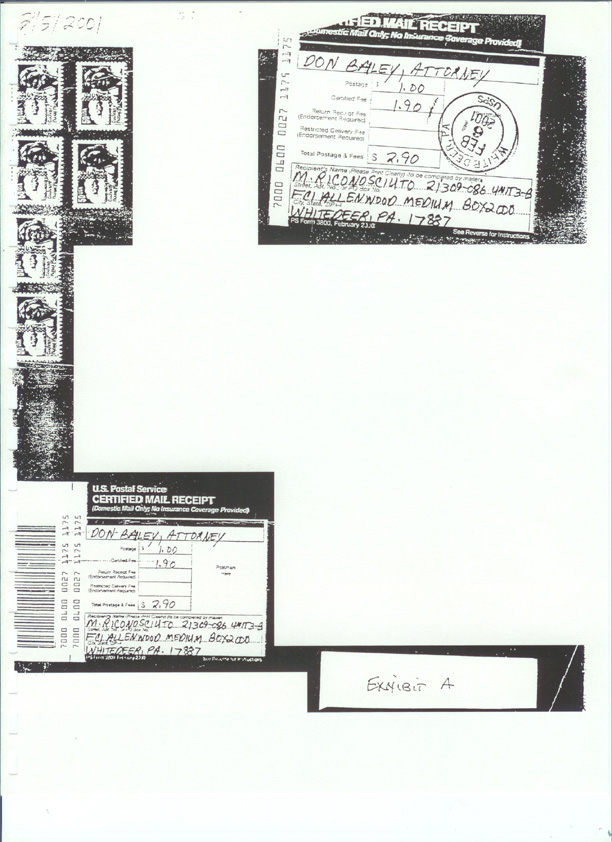 3/5/2001
CERTIFIED MAIL RECEIPT
(Domestic Mail Only; No Insurance Coverage Provided)
7000 0600 0027 1175 1175
DON BALEY, ATTORNEY
Postage $ 1.00
Certified Fee 1.90
Return Receipt Fee
(Endorsement Required)
Restricted Delivery Fee
(Endorsement Required)
Total Postage & Fees $ 2.90
WHITE DEER, PA
FEB
6
2001
USPS
Recipient's Name (Please Print Clearly) (to be completed by mailer)
M. RICONOSCIUTO 21309-086 UNIT 3-B
FCI ALLENWOOD MEDIUM BOX 2000
WHITEDEER, PA. 17887
PS Form 3800, February 2000
See Reverse for Instructions
U.S. Postal Service
CERTIFIED MAIL RECEIPT
(Domestic Mail Only; No Insurance Coverage Provided)
7000 0600 0027 1175 1175
7000 0600 0027 1175 1175
DON BALEY, ATTORNEY
Postage $ 1.00
Certified Fee 1.90
Postmark
Here
Return Receipt Fee
(Endorsement Required)
Restricted Delivery Fee
(Endorsement Required)
Total Postage & Fees $ 2.90
Recipient's Name (Please Print Clearly) (to be completed by mailer)
M. RICONOSCIUTO 21309-086 UNIT 3-B
FCI ALLENWOOD MEDIUM BOX 2000
WHITEDEER, PA. 17887
PS Form 3800, February 2000
See Reverse for Instructions
EXHIBIT A